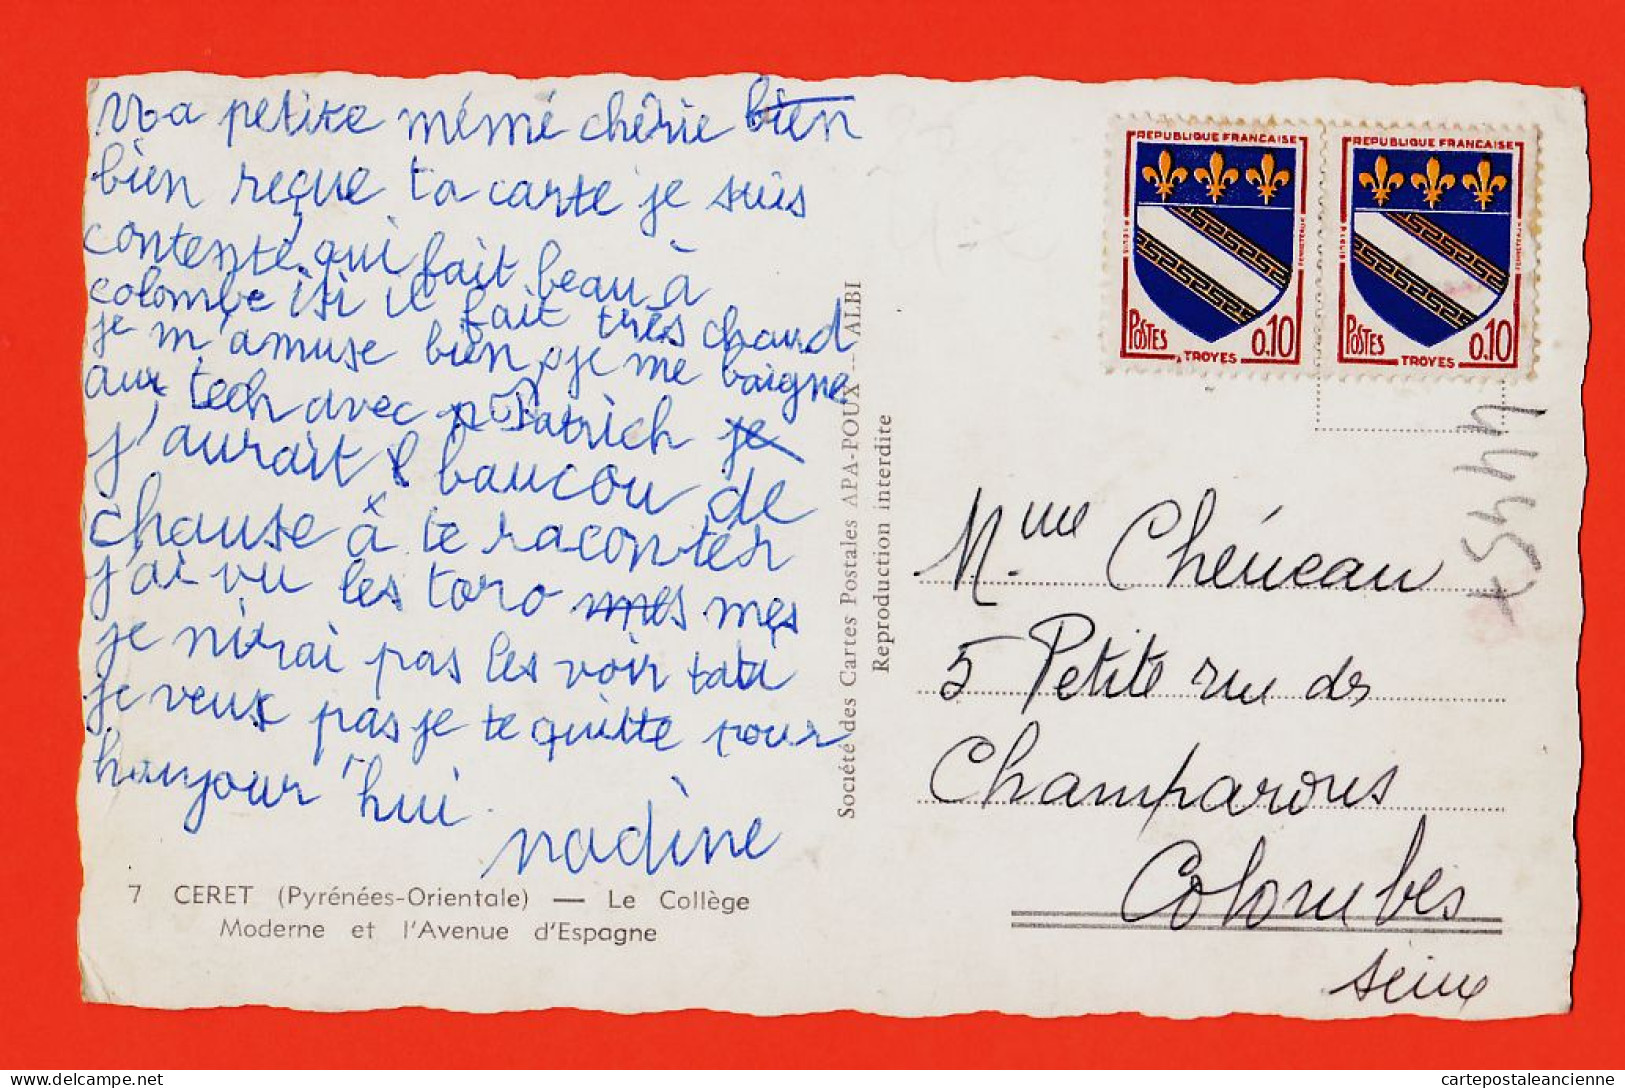 Ma petite mémé chérie bien
bien reçue ta carte je suis
contente qui fait beau à
colombe isi il fait très chaud
je m'amuse bien je me baigne
aux tech avec Patrich je
j'aurait baucou de
chause à te raconter
j'ai vu les toro mes mes
je n'irai pas les voir tati
je veux pas je te quitte pour
haujour'hui
nadine
7 CERET (Pyrénées-Orientale) — Le Collège
Moderne et l'Avenue d'Espagne
Société des Cartes Postales APA-POUX - ALBI
Reproduction interdite
REPUBLIQUE FRANCAISE
POSTES 0.10
TROYES
REPUBLIQUE FRANCAISE
POSTES 0.10
TROYES
Mme Chéneau
5 Petite rue des
Champarons
Colombes
Seine
cartepostaleancienne